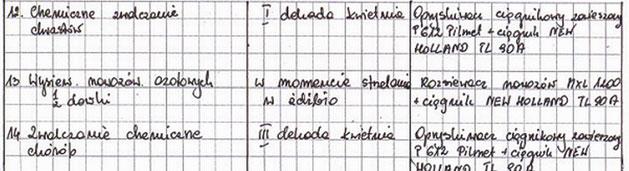 12. Chemiczne zwalczanie I dekada kwietnia Opryskiwacz ciągnikowy zawieszany
chwastów P 612 Pilmet + ciągnik NEW
HOLLAND TL 90A
13 Wysiew nawozów azotowych w momencie strzelania Rozsiewacz nawozów MXL 1200
1/2 dawki w źdźbło + ciągnik NEW HOLLAND TL 90A
14 Zwalczanie chemiczne III dekada kwietnia Opryskiwacz ciągnikowy zawieszany
chorób P 612 Pilmet + ciągnik NEW
HOLLAND TL 90A